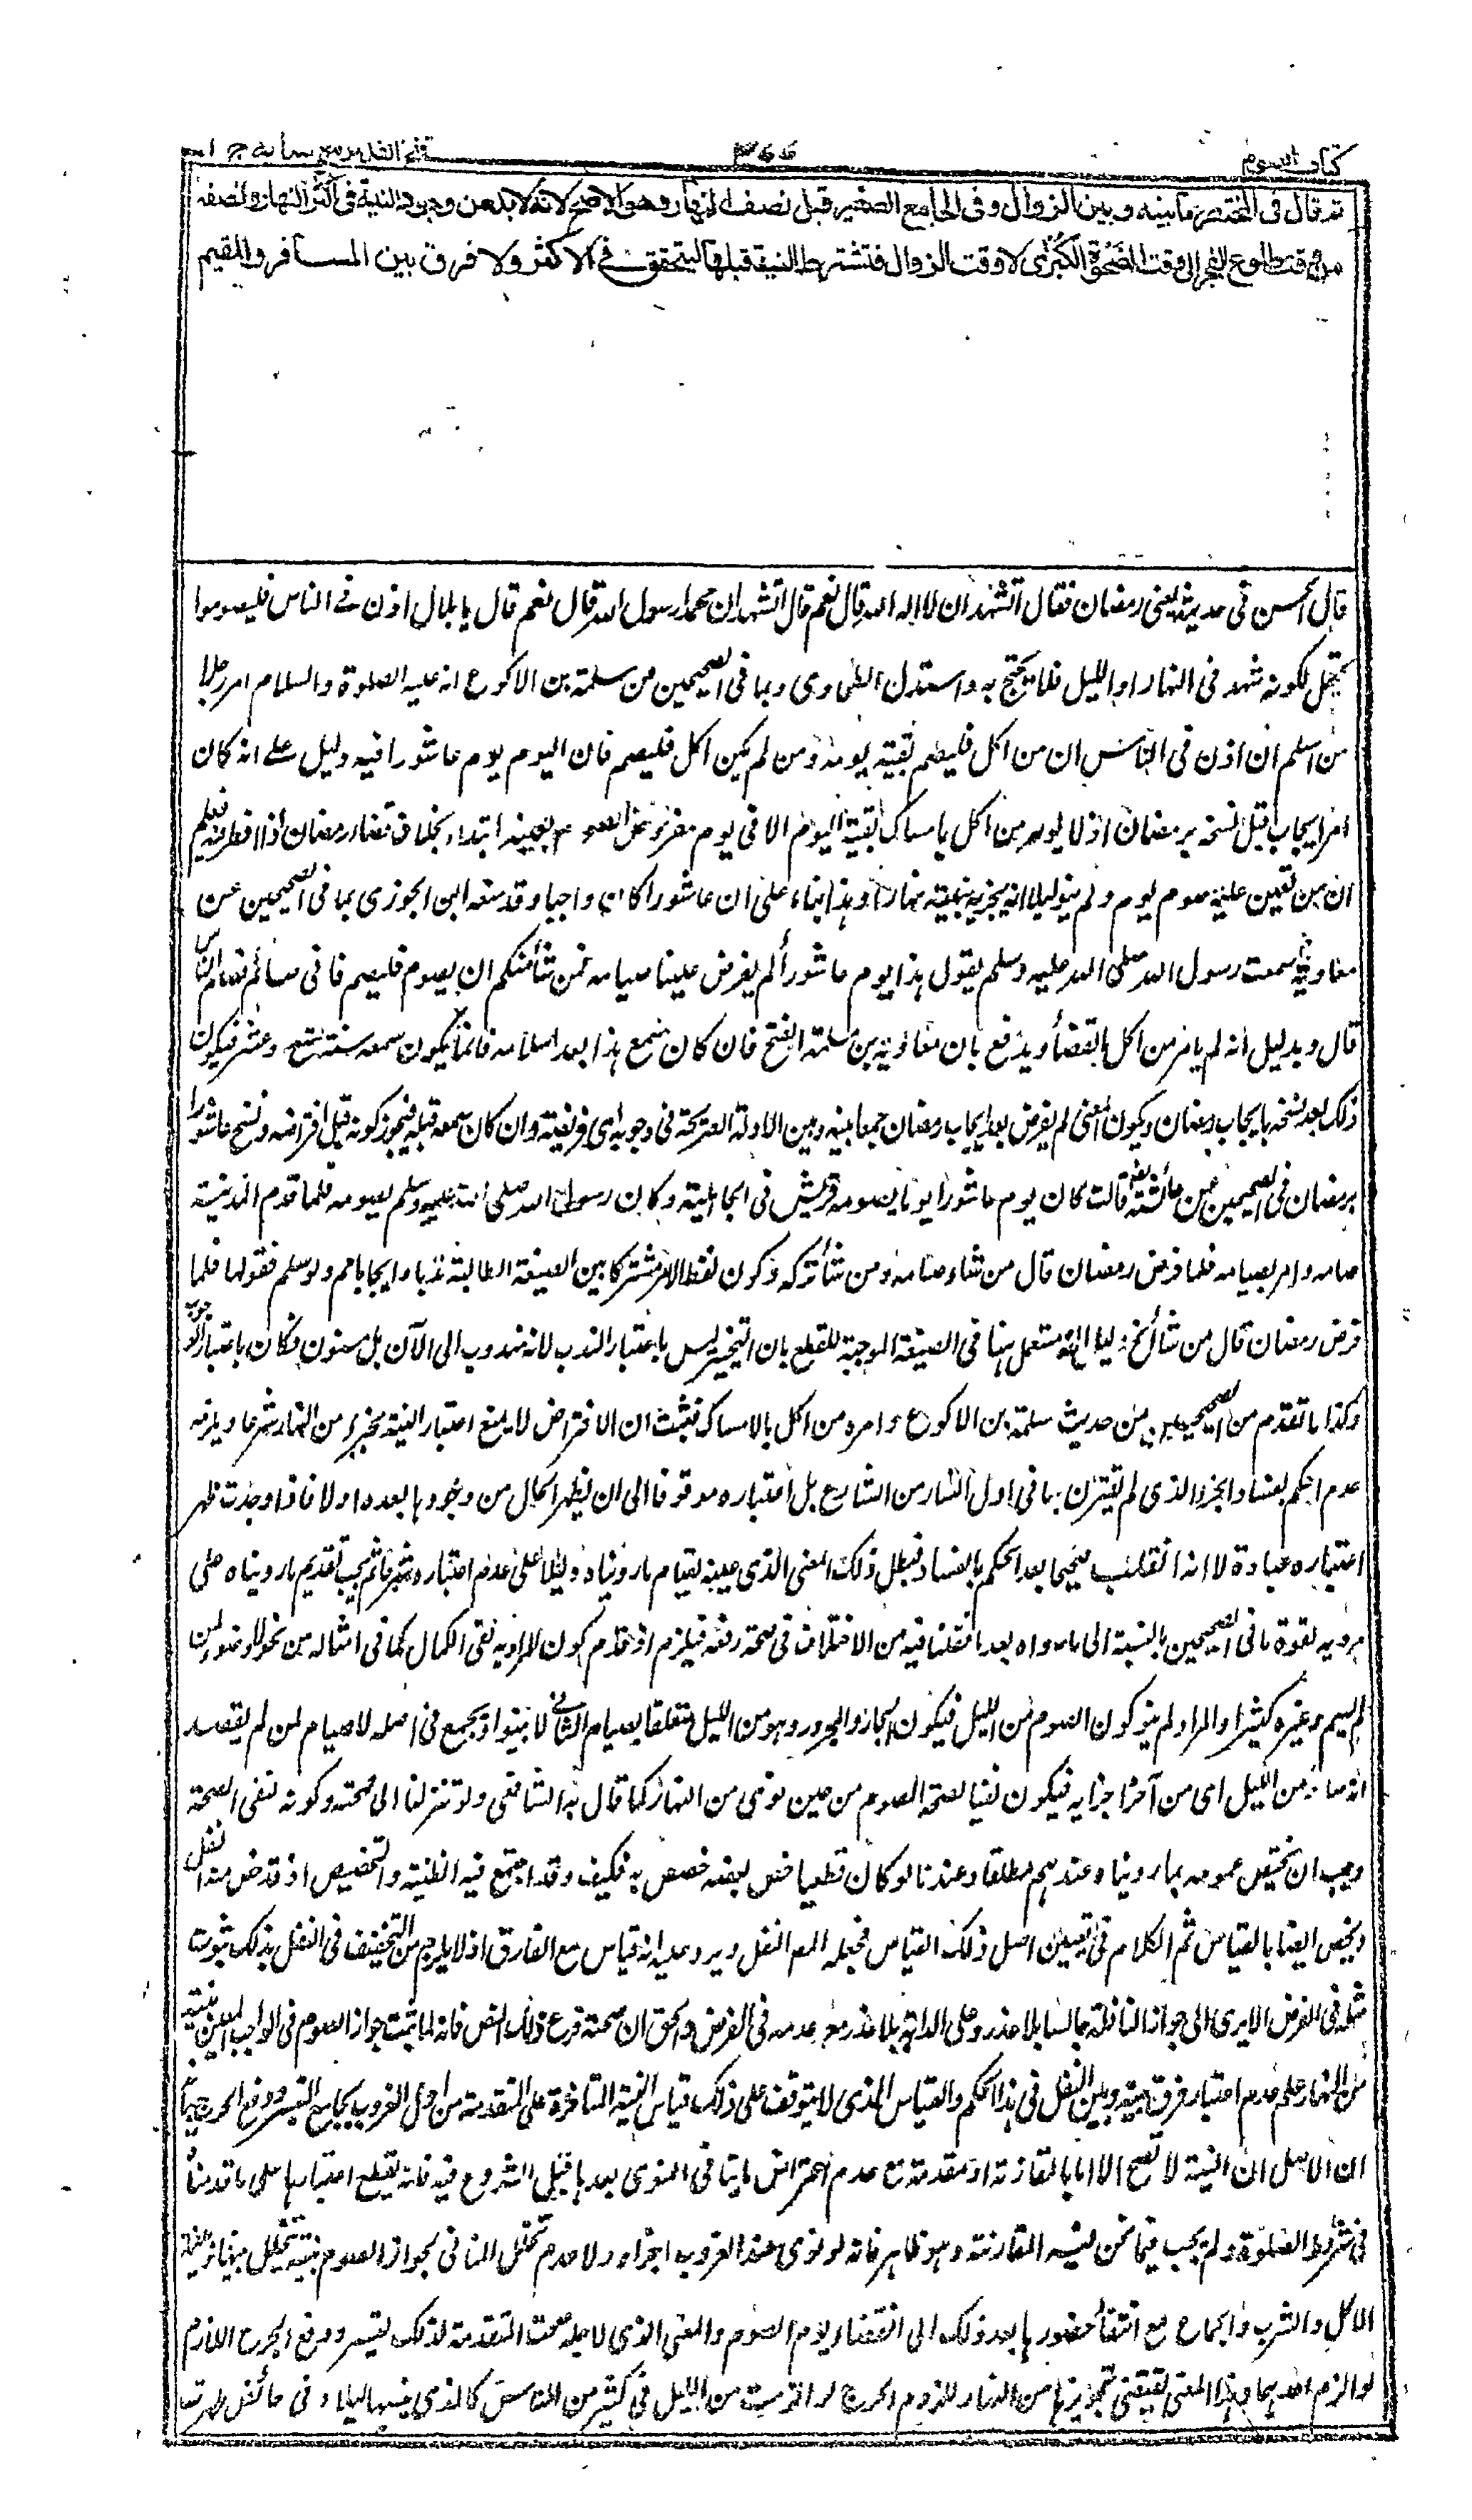 كتاب الصوم
٣٦٦
فتح القدير مع هدايه ج ا
ثم قال في المختصر ما بينه وبين الزوال وفي الجامع الصغير قبل نصف النهار وهو الاصح لانه لا بد من وجود النية في اكثر النهار ونصفه
من وقت طلوع الفجر الى وقت الضحوة الكبرى لا وقت الزوال فتشترط النية قبلها ليتحقق في الاكثر ولا فرق بين المسافر والمقيم
قال الحسن في حديثه يعني رمضان فقال اتشهد ان لا اله الا الله قال نعم قال اتشهد ان محمدا رسول الله قال نعم قال يا بلال اذن في الناس فليصوموا
محتمل لكونه شهد في النهار او الليل فلا يحتج به واستدل الطحاوى وبما في الصحيحين من سلمة بن الاكوع انه عليه الصلوة والسلام امر رجلا
من اسلم ان اذن في الناس ان من اكل فليصم بقية يومه ومن لم يكن اكل فليصم فان اليوم يوم عاشورا فيه دليل على انه كان
امر ايجاب قبل نسخه برمضان اذ لا يومر من اكل بامساك بقية اليوم الا في يوم مفروض الصوم بعينه ابتداء بخلاف قضاء رمضان اذا افطر فيه فعلم
ان من تعين عليه صوم يوم ولم ينوه ليلا انه يجزيه بنيته نهارا وهذا بناء على ان عاشورا كان واجبا وقد منعه ابن الجوزى بما في الصحيحين عن
معاوية سمعت رسول الله صلى الله عليه وسلم يقول هذا يوم عاشورأ لم يفرض علينا صيامه فمن شأ منكم ان يصوم فليصم فانى صائم فصام الناس
قال وبدليل انه لم يامر من اكل بالقضأ ويدفع بان معاوية من مسلمة الفتح فان كان سمع هذا بعد اسلامه فانما يكون سمعه سنة تسع وعشر فيكون
ذلك بعد نسخه بايجاب رمضان ويكون المعنى لم يفرض بعد ايجاب رمضان جمعا بينه وبين الادلة الصريحة في وجوبه اى فرضيته وان كان سمعه قبله فيجوز كونه قبل افتراضه ونسخ عاشورا
برمضان في الصحيحين عن عائشة قالت كان يوم عاشورا يوما يصومه قريش في الجاهلية وكان رسول الله صلى الله عليه وسلم يصومه فلما قدم المدينة
صامه وامر بصيامه فلما فرض رمضان قال من شاء صامه ومن شأ تركه وكون لفظ الامر مشتركا بين الصيغة الطالبة ندبا وايجابا مم ولو سلم فقولها فلما
فرض رمضان قال من شأ الخ دليل انه مستعمل هنا في الصيغة الموجبة للقطع بان التخيير ليس باعتبار الندب لانه مندوب الى الآن بل مسنون فكان باعتبار الوجوب
وكذا ما تقدم من الصحيحين من حديث سلمة بن الاكوع وامره من اكل بالامساك فثبت ان الافتراض لا يمنع اعتبار النية مجزية من النهار شرعا ويلزمه
عدم الحكم بفساد الجزء الذى لم يقترن بها في اول النهار من الشارع بل اعتباره موقوفا الى ان يظهر الحال من وجودها بعده او لا فاذا وجدت ظهر
اعتباره عبادة لا انه انقلب صحيحا بعد الحكم بالفساد فبطل ذلك المعنى الذى عينه لقيام ما رويناه دليلا على عدم اعتباره شرعا ثم يجب تقديم ما رويناه على
مرويه لقوة ما في الصحيحين بالنسبة الى ما سواه بعد ما نقلنا فيه من الاختلاف في صحة رفعه فيلزم اذ قدم كون المراد به نفى الكمال كما في امثاله من نحو لا وضوء لمن
لم يسم وغيره كثير او المراد لم ينو كون الصوم من الليل فيكون الجار والمجرور وهو من الليل متعلقا بصيام الثانى لا بينوا ويجمع في اصله لا صيام لمن لم يقصد
انه صائم من الليل اى من آخر اجزايه فيكون نفيا لصحة الصوم من حين نوى من النهار كما قال به الشافعى ولو تنزلنا الى صحته وكونه لنفى الصحة
وجب ان يخص عمومه بما روينا وعندهم مطلقا وعندنا لو كان قطعيا خص بعضه خصص به فكيف وقد اجتمع فيه الظنية والتخصيص اذ قد خص منه النفل
ويخص ايضا بالقياس ثم الكلام في تعيين اصل ذلك القياس فجعله المص النفل ويرد عليه انه قياس مع الفارق اذ لا يلزم من التخفيف في النفل بذلك ثبوت
مثله في الفرض الا يرى الى جواز النافلة جالسا بلا عذر وعلى الدابة بلا عذر مع عدمه في الفرض والحق ان صحته فرع ذلك النص فانه لما ثبت جواز الصوم في الواجب المعين بنية
من النهار علم عدم اعتبار فرق بينه وبين النفل في هذا الحكم والقياس الذى لا يتوقف على ذلك قياس النية المتاخرة على المتقدمة من اول الغروب بجامع التيسير ودفع الحرج بيانه
ان الاصل ان النية لا تصح الا بالمقارنة او مقدمة مع عدم اعتراض ما ينافى المنوى بعدها قبل الشروع فيه فانه يقطع اعتبارها على ما قدمنا
في شروط الصلوة ولم يجب فيما نحن فيه المقارنة وهو ظاهر فانه لو نوى عند الغروب اجزاه ولا عدم تخلل المنافى لجواز الصوم بنية تخلل بينها وبينه
الاكل والشرب والجماع مع انتفأ حضورها بعد ذلك الى انقضاء يوم الصوم والمعنى الذى لاجله صحت المتقدمة لذلك التيسير ودفع الحرج اللازم
لو الزم احدهما وهذا المعنى يقتضى تجويزها من النهار للزوم الحرج لو الزمت من الليل في كثير من الناس كالذى نسيها ليلا وفي حائض طهرت